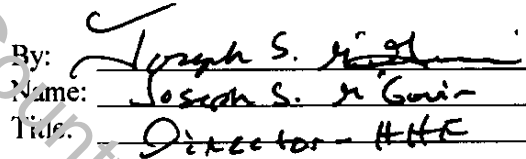 By: Joseph S.
Name: Joseph S. McGovin
Title: Director - HHF